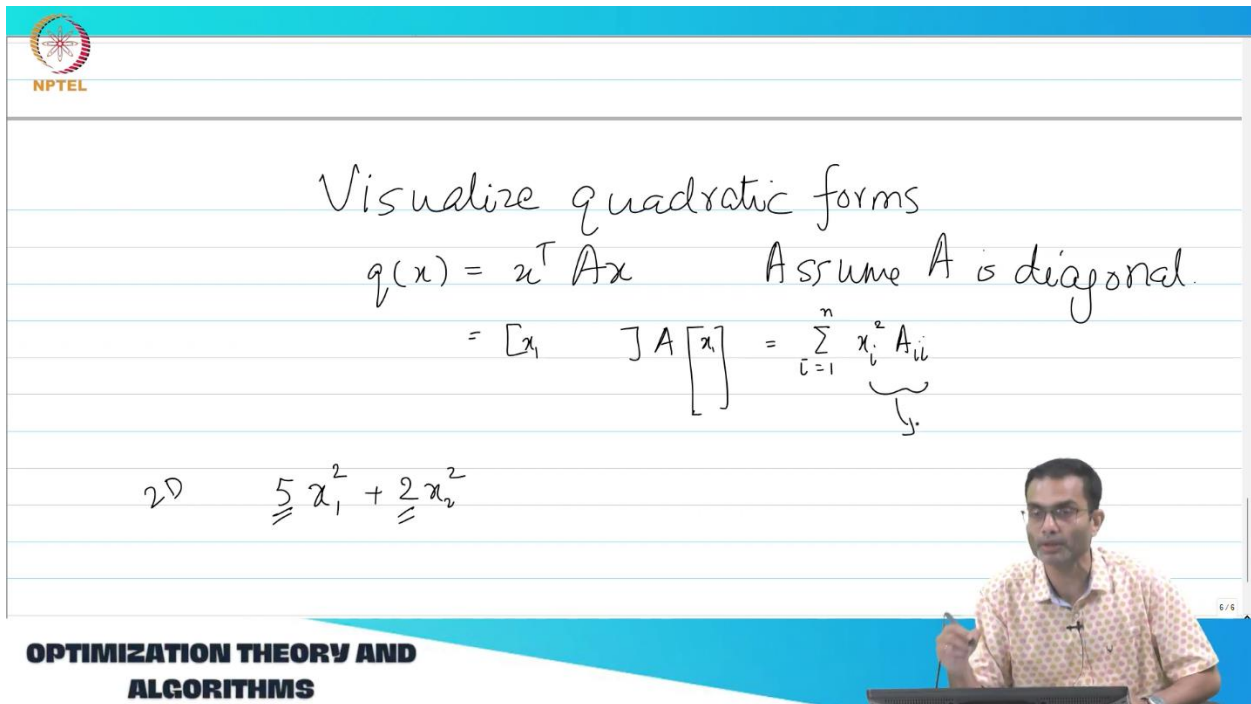 NPTEL
Visualize quadratic forms
q(x) = x^T Ax Assume A is diagonal.
= [x₁ ] A [x₁] = ∑_{i=1}^{n} x_i² A_{ii}
2D 5 x₁² + 2 x₂²
6/6
OPTIMIZATION THEORY AND
ALGORITHMS